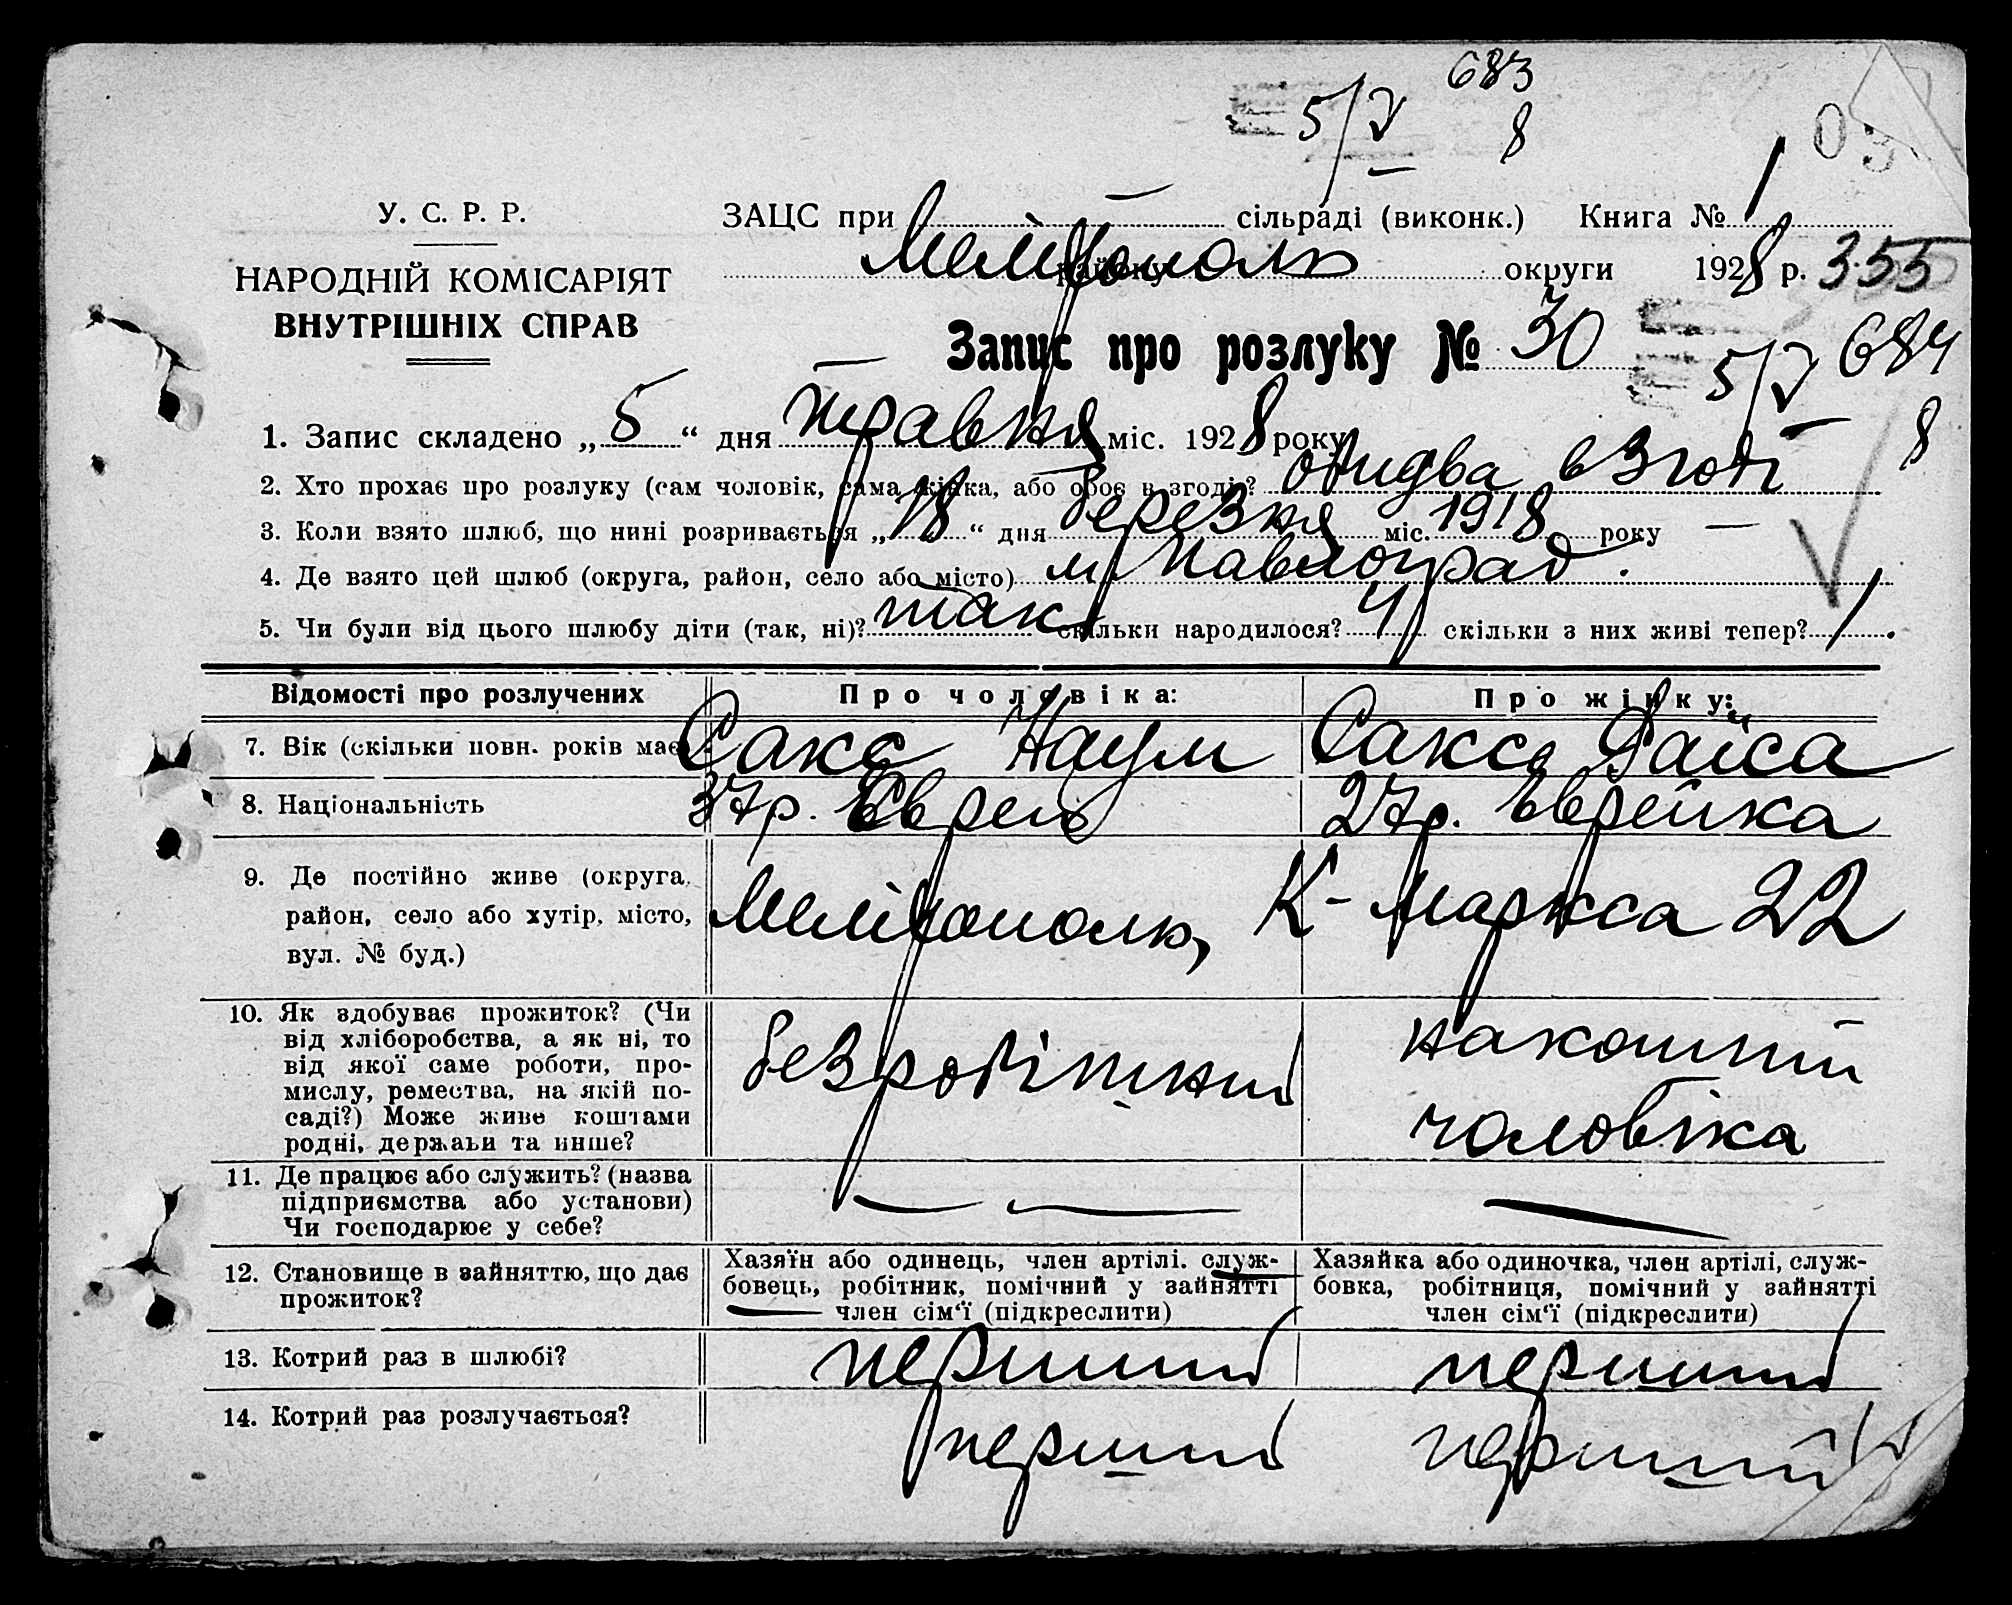 683
5/V 8
У. С. Р. Р.
ЗАЦС при сільраді (виконк.) Книга № 1
Мелітополь району округи 1928 р. 355
НАРОДНІЙ КОМІСАРІЯТ
ВНУТРІШНІХ СПРАВ
Запис про розлуку № 30
5/V 684
8
1. Запис складено „5“ дня травня міс. 1928 року
2. Хто прохає про розлуку (сам чоловік, сама жінка, або обоє в згоді)? обидва в згоді
3. Коли взято шлюб, що нині розривається „18“ дня березня міс. 1918 року —
4. Де взято цей шлюб (округа, район, село або місто) м. Павлоград.
5. Чи були від цього шлюбу діти (так, ні)? так скільки народилося? 4 скільки з них живі тепер? 1.
Відомості про розлучених Про чоловіка: Про жінку:
Сакс Наум Сакс Раїса
7. Вік (скільки повн. років має)
8. Національність 37 р. Єврей 27 р. Єврейка
9. Де постійно живе (округа, район, село або хутір, місто, вул. № буд.) Мелітополь, К-Маркса 22
10. Як здобуває прожиток? (Чи
від хліборобства, а як ні, то
від якої саме роботи, про-
мислу, ремества, на якій по-
саді?) Може живе коштами
родні, держави та инше?
безробітний
на кошти
чоловіка
11. Де працює або служить? (назва
підприємства або установи)
Чи господарює у себе?
— — —
12. Становище в зайняттю, що дає
прожиток?
Хазяїн або одинець, член артілі. служ-
бовець, робітник, помічний у зайнятті
член сім'ї (підкреслити)
Хазяйка або одиночка, член артілі, служ-
бовка, робітниця, помічний у зайнятті
член сім'ї (підкреслити)
13. Котрий раз в шлюбі? перший перший
14. Котрий раз розлучається? перший перший